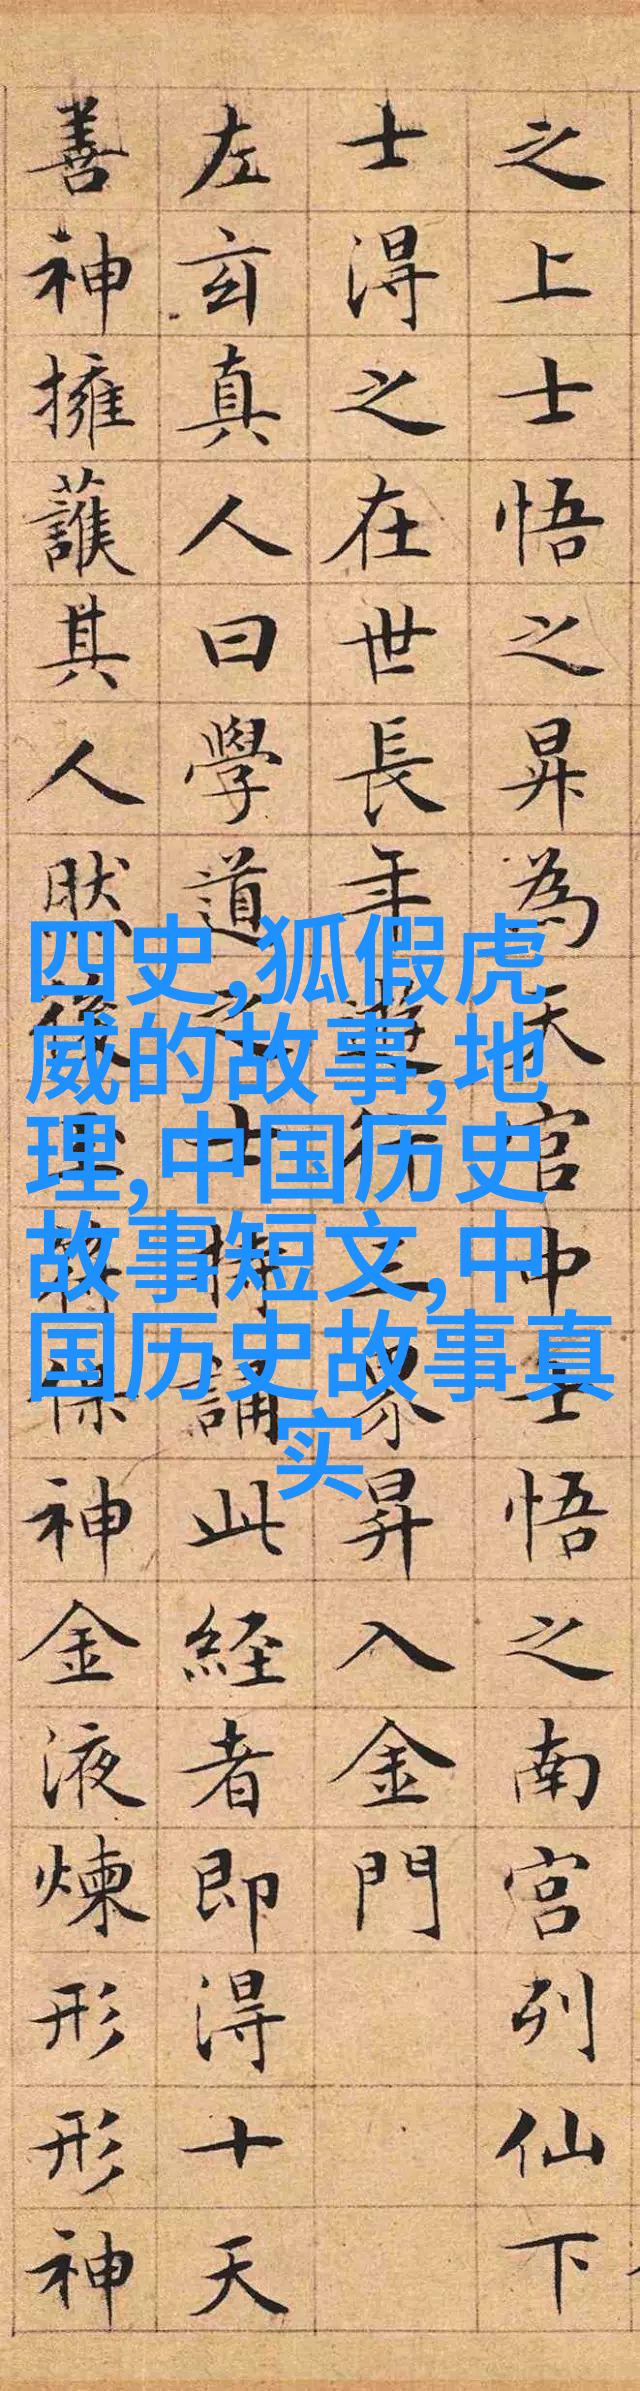 之上士悟之昇為天官中士悟之南宮列仙下
士得之在世長年遊行三界昇入金門
左玄真人曰學道之士持誦此經者即得十天
善神擁護其人然後玉符保神金液煉形形神
四史,狐假虎
威的故事,地
理,中国历史
故事短文,中
国历史故事真
实